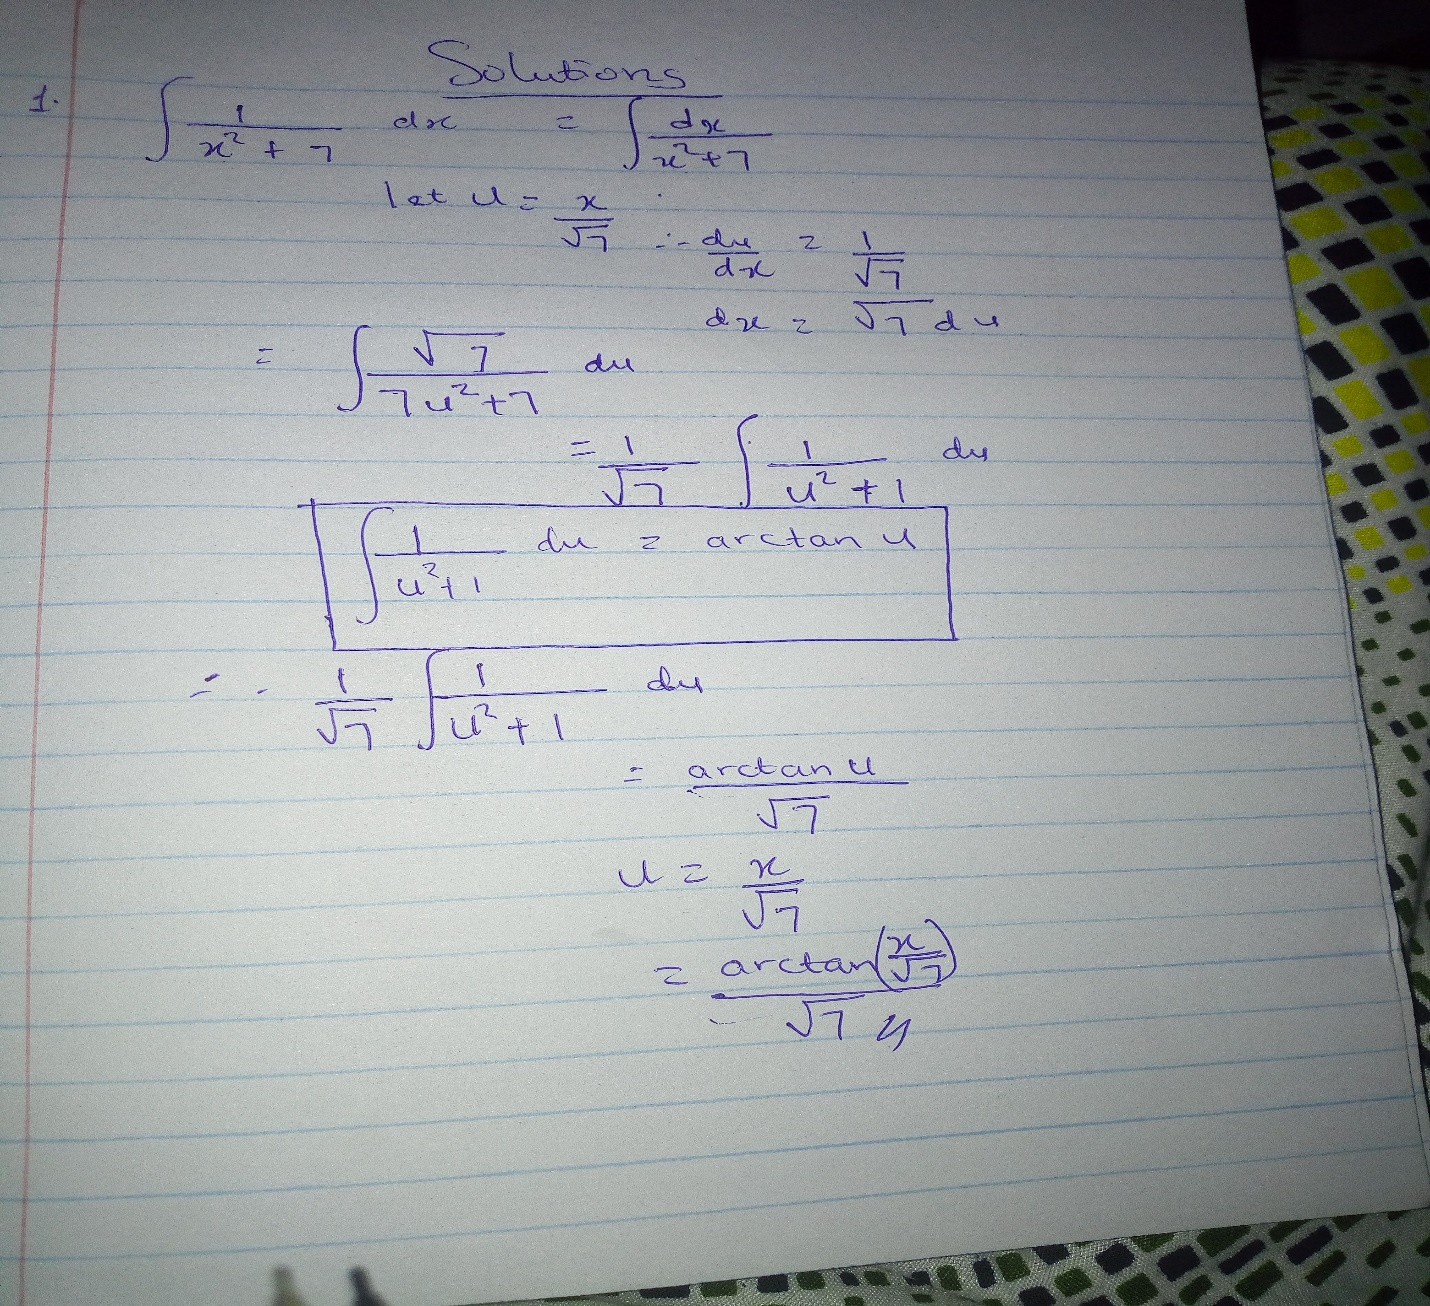 Solutions
1. ∫ 1/(x² + 7) dx = ∫ dx/(x² + 7)
let u = x/√7 ∴ du/dx = 1/√7
dx = √7 du
= ∫ √7/(7u² + 7) du
= 1/√7 ∫ 1/(u² + 1) du
∫ 1/(u² + 1) du = arctan u
= 1/√7 ∫ 1/(u² + 1) du
= arctan u/√7
u = x/√7
= arctan(x/√7)/√7